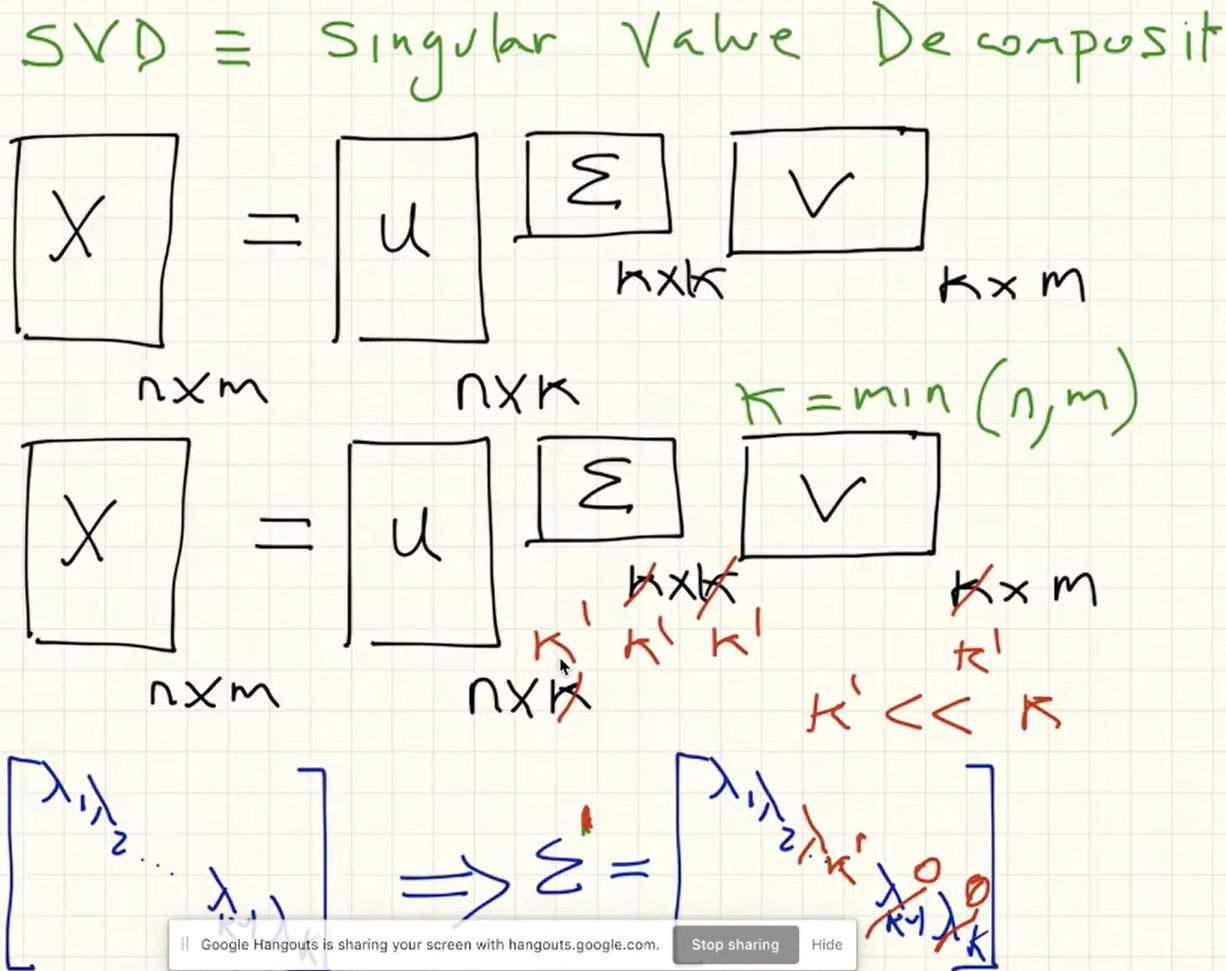 SVD ≡ Singular Value Decomposit
X = U Σ V
k×k
k × m
n×m
n×k
k = min (n,m)
X = U Σ V
k×k
k × m
k' k' k'
k'
n×m
n×k
k' << k
λ1 λ2 ... λk-1 λk ⟹ Σ' = λ1 λ2 ... λk' λk-1 0 λk 0
Google Hangouts is sharing your screen with hangouts.google.com. Stop sharing Hide